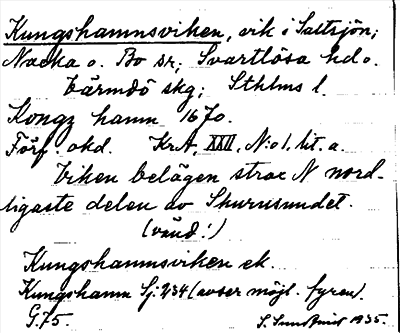 Kungshamnsviken, vik i Saltsjön;
Nacka o. Bo sr; Svartlösa hd o.
Värmdö skg; Sthlms l.
Kongz hamn 1670.
Förf. okd. KrA, XXII, N:o 1, lit. a.
Viken belägen strax N nord-
ligaste delen av Skurusundet.
(vänd!)
Kungshamnsviken ek.
Kungshamn Sj. 234 (avser möjl. fyren).
G.75. S. Sundquist 1935.